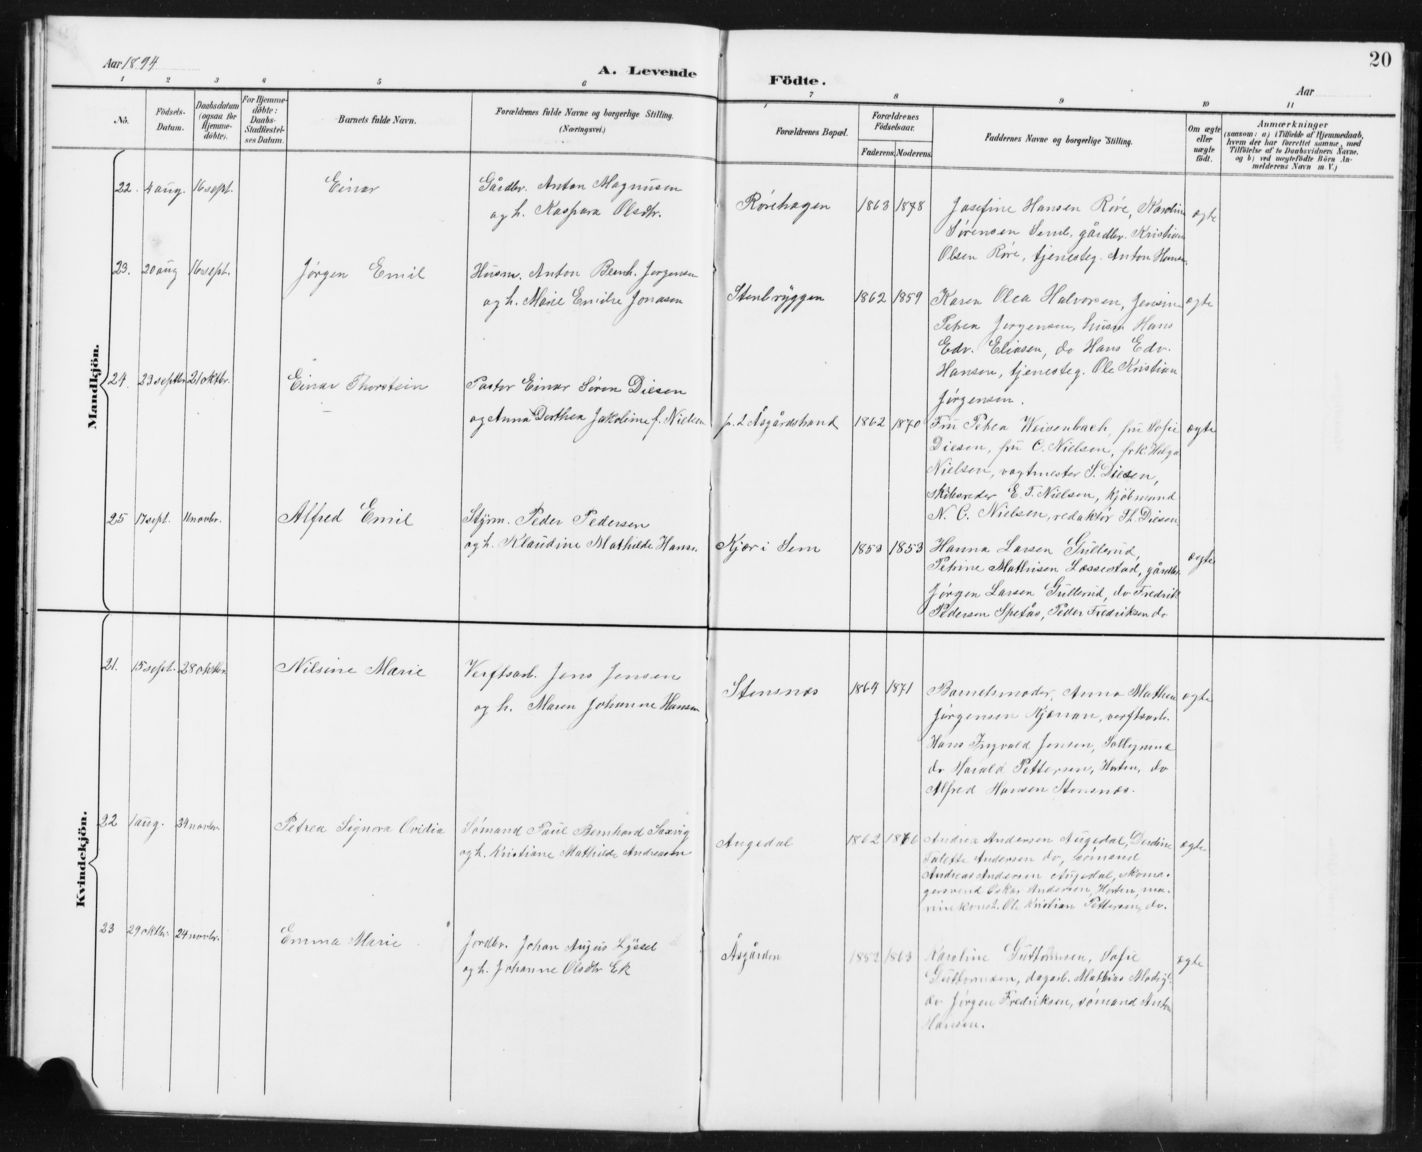 Aar 1894
A. Levende Födte.
Aar
20
1 2 3 4 5 6 7 8 9 10 11
No.
Födsels-Datum.
Daabsdatum (ogsaa for Hjemme-döbte).
For Hjemme-döbte: Daabs-Stadfæstel-ses Datum.
Barnets fulde Navn.
Forældrenes fulde Navne og borgerlige Stilling. (Næringsvei.)
Forældrenes Bopæl.
Forældrenes Födselsaar.
Faderens. Moderens.
Faddernes Navne og borgerlige Stilling.
Om ægte eller uægte födt.
Anmærkninger
(saasom: a) i Tilfælde af Hjemmedaab, hvem der har forrettet samme, med Tilføielse af to Daabsvidners Navne, og b) ved uægtefödte Börn An-melderens Navn m. V.)
Mandkjön.
22. 4 aug. 16 sept. Einar
Gårdbr. Anton Magnusen
og h. Kaspara Olsdtr.
Rørehagen 1863 1878
Josefine Hansen Røre, Karoline
Sørensen Semb, gårdbr. Kristian
Olsen Røre, tjenesteg. Anton Hansen
ægte
23. 20 aug 16 sept. Jørgen Emil
Husm. Anton Bernh. Jørgensen
og h. Marie Emilie Jonasen
Stenbryggen 1862 1859
Karen Olea Halvorsen, Jensine
Petrea Jørgensen, husm Hans
Edv. Eliasen, do Hans Edv.
Hansen, tjenesteg. Ole Kristian
Jørgensen.
ægte
24. 23 septbr. 21 oktbr. Einar Thorstein
Pastor Einar Søren Diesen
og Anna Dorthea Jakobine f. Nielsen
p. t. Åsgårdstrand 1862 1870
Fru Petra Weisenbach, fru Sofie
Diesen, fru C. Nielsen, frk. Helga
Nielsen, vagtmester S. Diesen,
skibsreder E. T. Nielsen, kjøbmand
N. C. Nielsen, redaktør Th. Diesen
ægte
25 17 sept. 11 novbr. Alfred Emil
Styrm. Peder Pedersen
og h. Klaudine Mathilde Hansen
Kjær i Sem 1853 1853
Hanna Larsen Gullerud,
Petrine Mathisen Læssestad, gårdbr.
Jørgen Larsen Gullerud, do Fredrik
Pedersen Spetås, Peder Fredriksen do
ægte
Kvindekjön.
21. 15 sept. 28 oktbr. Nilsine Marie
Verftsarb. Jens Jensen
og h. Maren Johanne Hansen
Stensnæs 1864 1871
Barnets moder, Anna Mathea
Jørgensen Kjønnan, verftsarb.
Hans Ingvald Jensen,
do Harald Pettersen, Horten, do
Alfred Hansen Stensnæs.
ægte
22 1 aug. 24 novbr. Petrea Signora Ovidia
Sømand Paul Bernhard Saxvig
og h. Kristiane Mathilde Andreasen
Augedal 1862 1870
Andrea Andersen Augedal,
Andersen do, sømand
Andreas Andersen Augedal, skoma-
gersvend Oskar Andersen, Horten, ma-
rinekonst. Ole Kristian Pettersen, do.
ægte
23 29 oktbr. 24 novbr. Emma Marie
Jordbr. Johan August
og h. Johanne Olsdtr Ek
Åsgården 1852 1863
Karoline Guttormsen, Sofie
Guttormsen, dagarb. Mathias
do Jørgen Fredriksen, sømand Anton
Hansen.
ægte